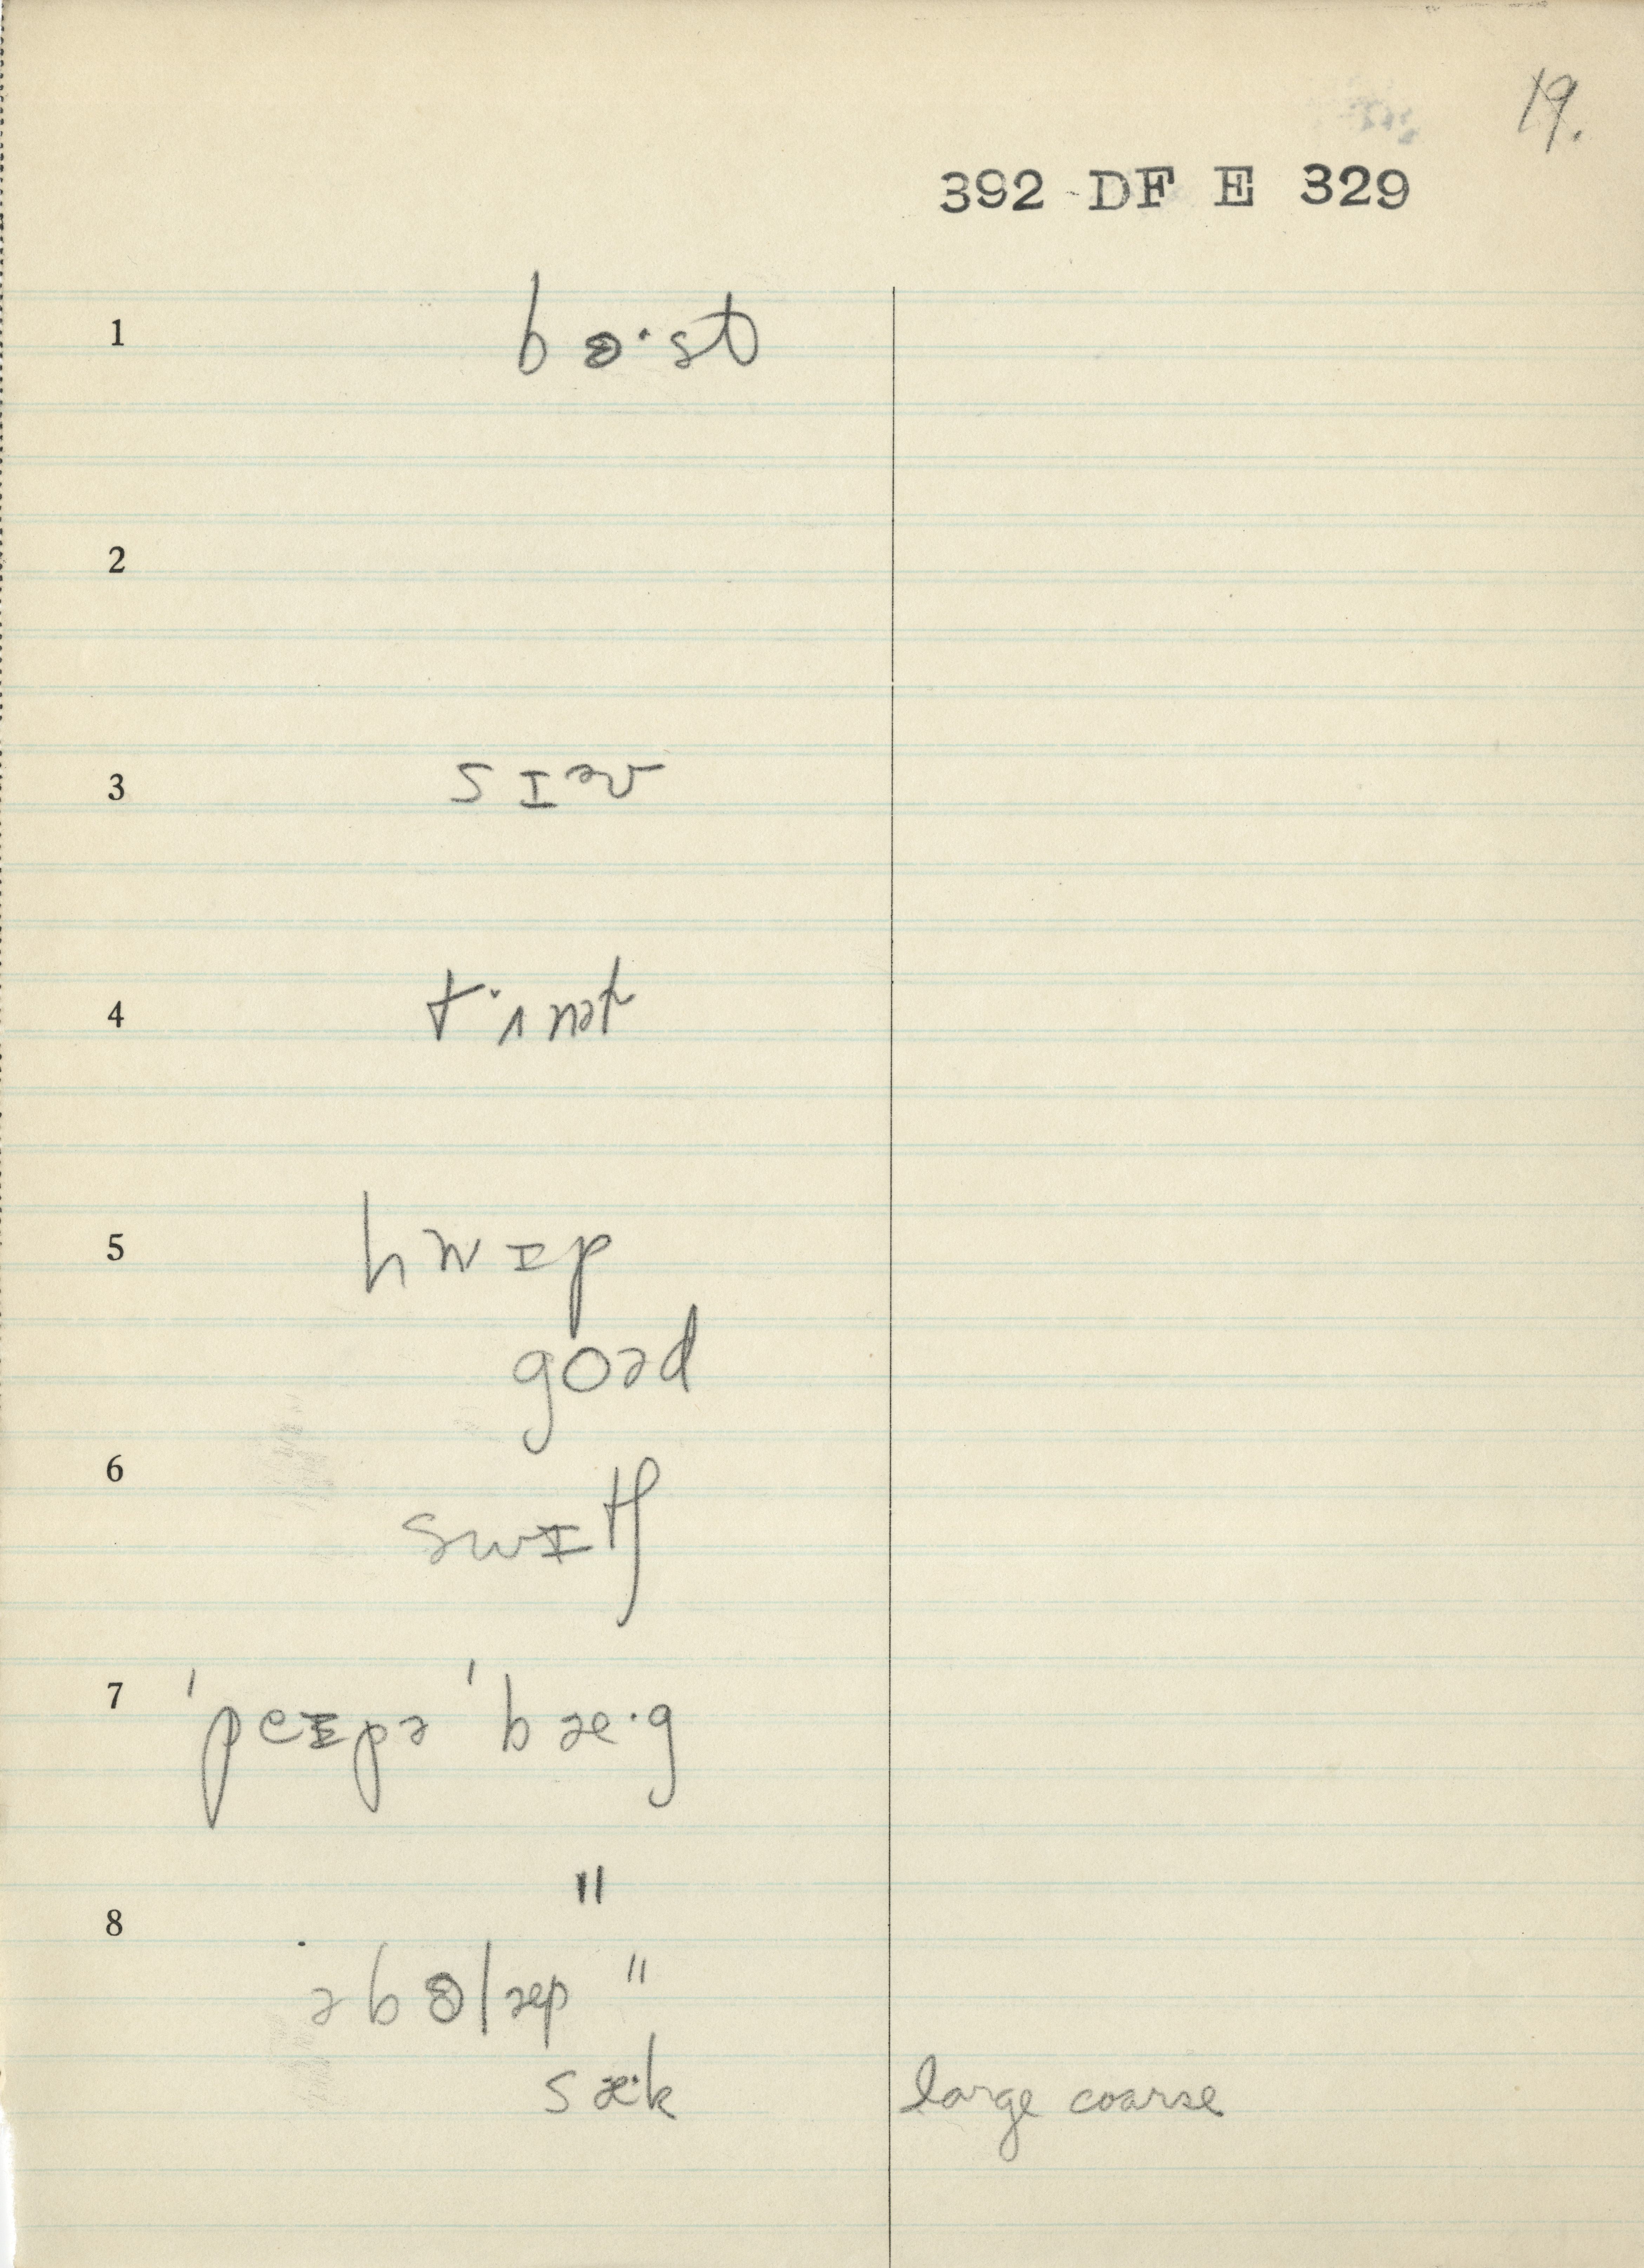 19.
392 DF E 329
1 bɵ·st
2
3 sɪəv
4 tʌnət
5 hwɪp
goəd
6 swɪtʃ
7 'peɪpə 'bæ·g
"
8
əbɵlæp "
sæ·k large coarse